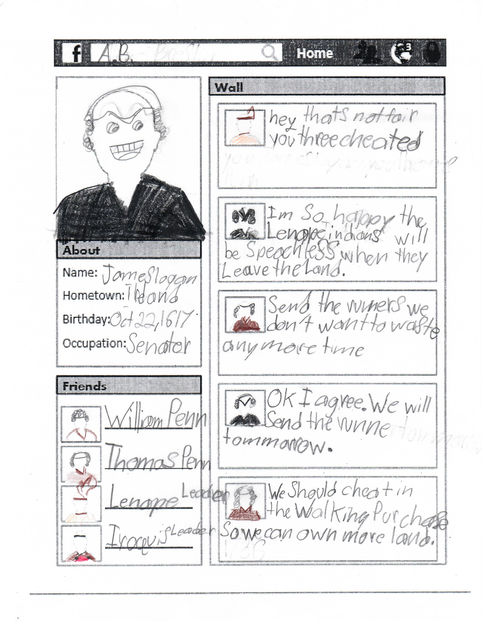 f A.B. Home
Wall
hey thats not fair
you three cheated
Im So happy the
Lenape indians will
be Speachless when they
Leave the land.
Send the runers we
don't want to waste
any more time
OK I agree. We will
Send the runne
tommarrow.
We Should cheat in
the Walking Purchase
So we can own more land.
About
Name: James logan
Hometown: Irland
Birthday: Oct 22, 1617
Occupation: Senator
Friends
William Penn
Thomas Penn
Lenape Leader
Iroquis Leader